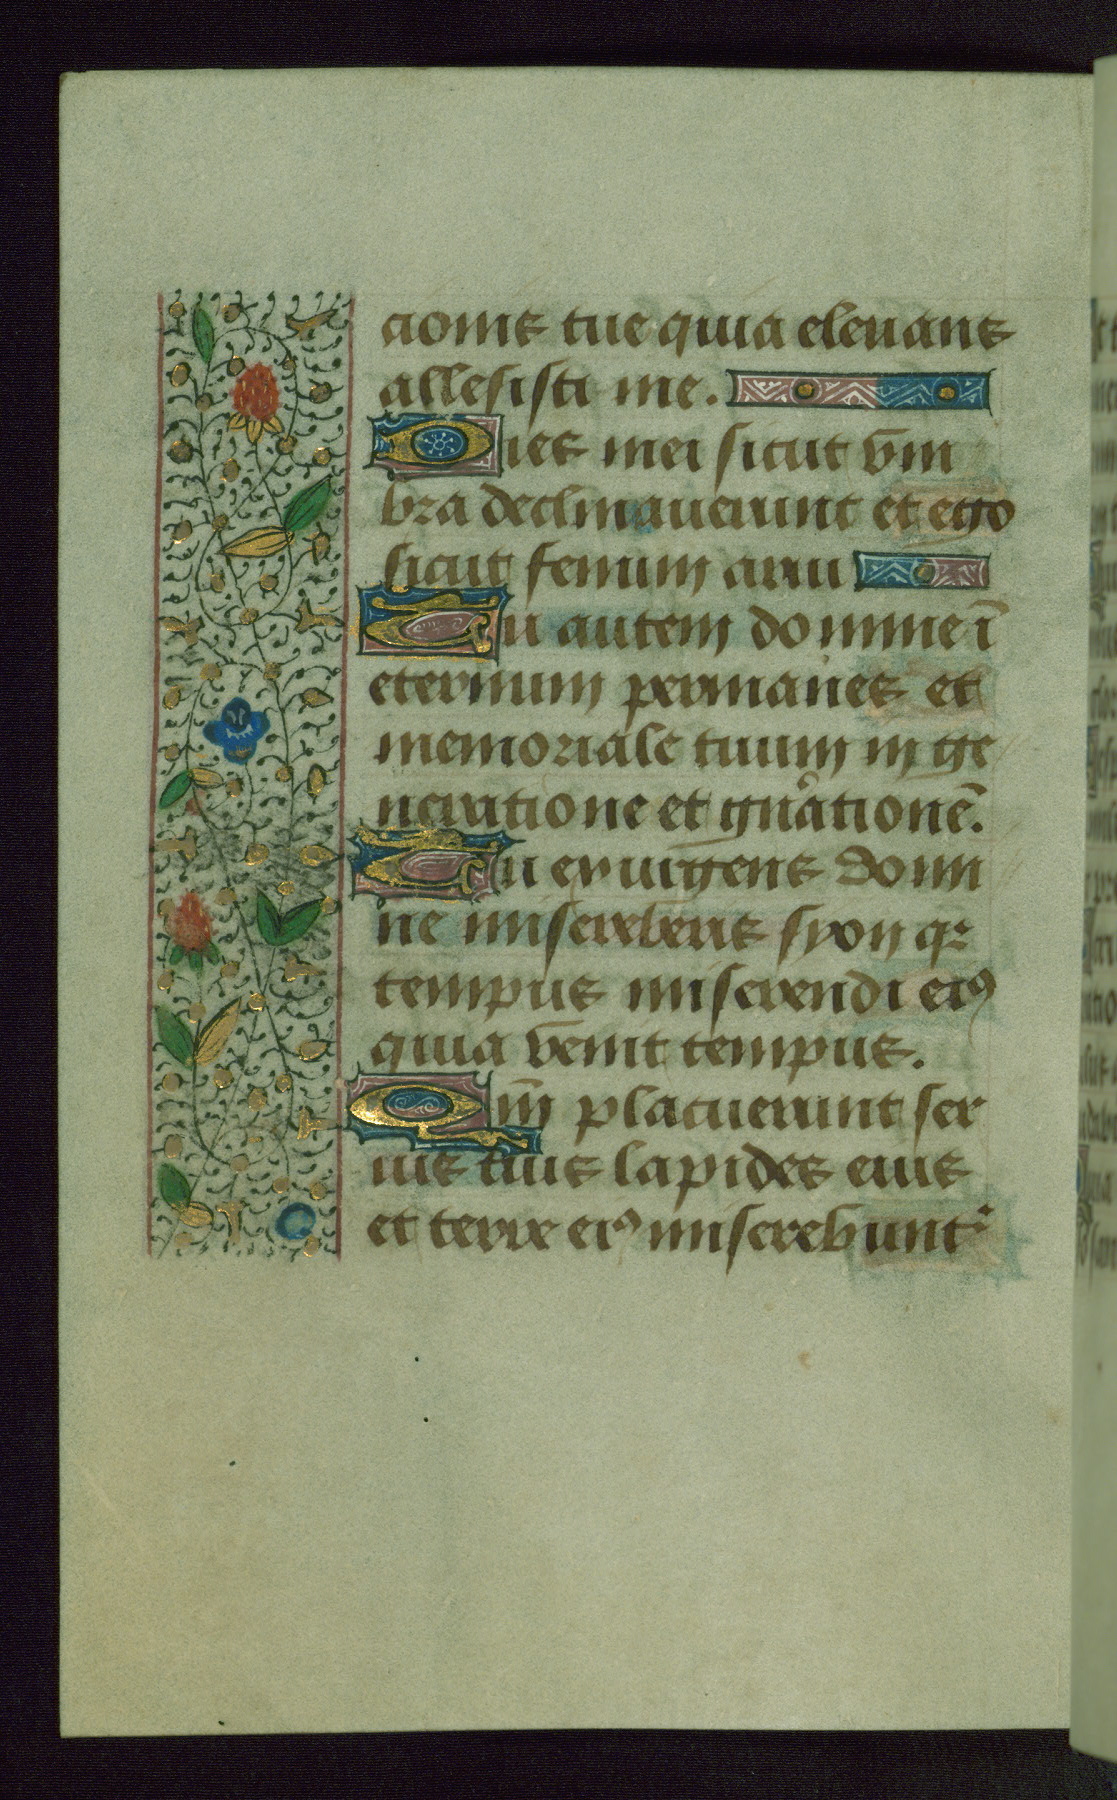 cionis tue quia elevans
allesisti me.
Dies mei sicut v̄m
bra declinauerunt et ego
sicut fenum arui
Tu autem domine ī
eternum permanes et
memoriale tuum in ge
neratione et gn̄ationē.
Tu exurgens domi
ne misereberis syon qꝛ
tempus miserendi eiꝰ
quia venit tempus.
Qm̄ placuerunt ser
uis tuis lapides eius
et terre eiꝰ miserebunt᷑